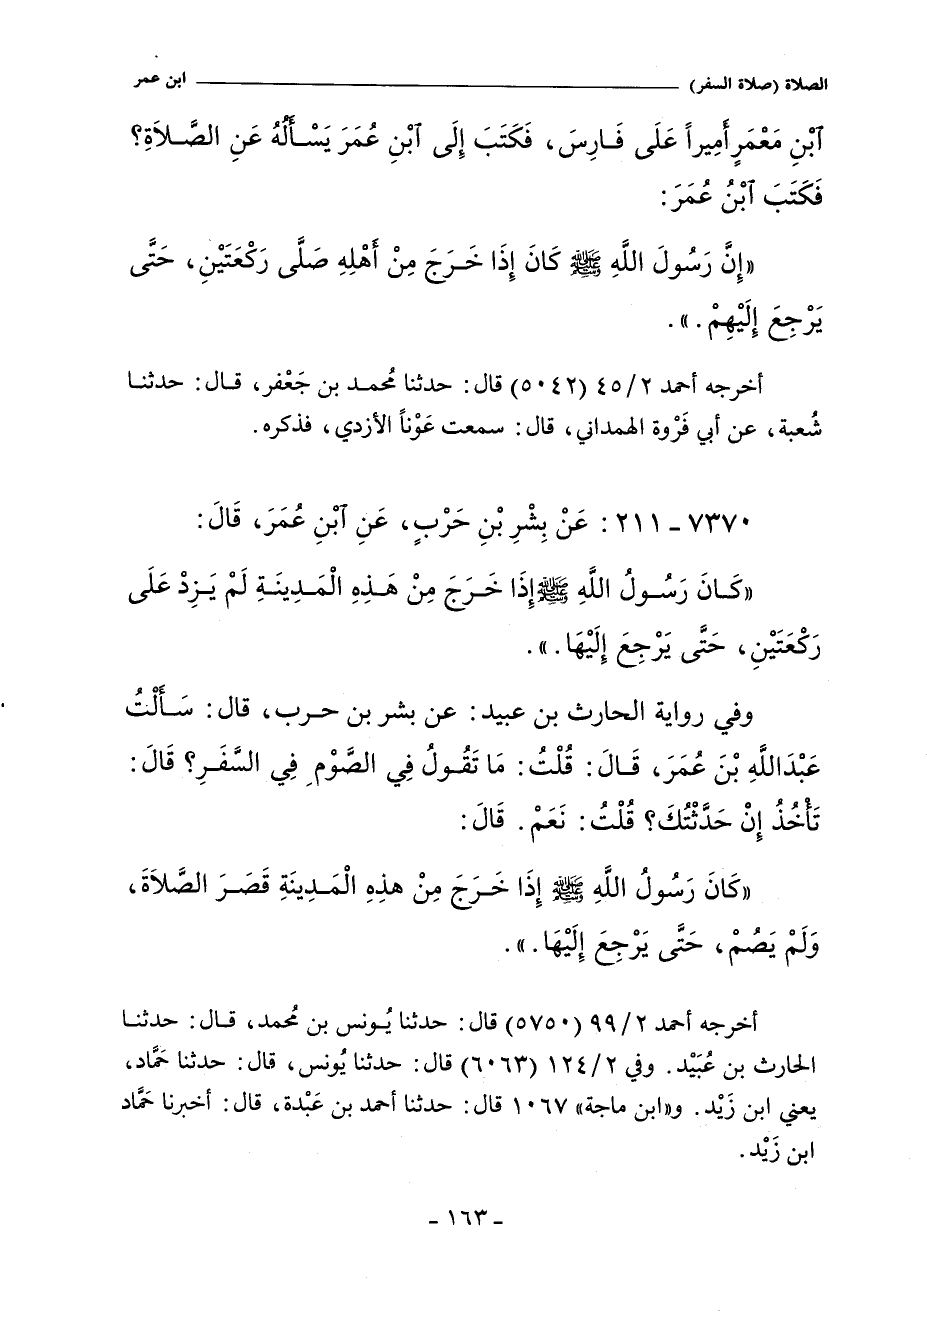 الصلاة (صلاة السفر) ابن عمر
ٱبْنِ مَعْمَرٍ أَمِيراً عَلَى فَارِسَ، فَكَتَبَ إِلَى ٱبْنِ عُمَرَ يَسْأَلُهُ عَنِ الصَّلاَةِ؟
فَكَتَبَ ٱبْنُ عُمَرَ:
«إِنَّ رَسُولَ اللَّهِ ﷺ كَانَ إِذَا خَرَجَ مِنْ أَهْلِهِ صَلَّى رَكْعَتَيْنِ، حَتَّى
يَرْجِعَ إِلَيْهِمْ.».
أخرجه أحمد ٤٥/٢ (٥٠٤٢) قال: حدثنا مُحمد بن جَعْفر، قال: حدثنا
شُعبة، عن أبي فَرْوة الهمداني، قال: سمعت عَوْناً الأزدي، فذكره.
٧٣٧٠ - ٢١١: عَنْ بِشْرِ بْنِ حَرْبٍ، عَنِ ٱبْنِ عُمَرَ، قَالَ:
«كَانَ رَسُولُ اللَّهِ ﷺ إِذَا خَرَجَ مِنْ هَذِهِ الْمَدِينَةِ لَمْ يَزِدْ عَلَى
رَكْعَتَيْنِ، حَتَّى يَرْجِعَ إِلَيْهَا.».
وفي رواية الحارث بن عبيد: عن بشر بن حرب، قال: سَأَلْتُ
عَبْدَاللَّهِ بْنَ عُمَرَ، قَالَ: قُلْتُ: مَا تَقُولُ فِي الصَّوْمِ فِي السَّفَرِ؟ قَالَ:
تَأْخُذُ إِنْ حَدَّثْتُكَ؟ قُلْتُ: نَعَمْ. قَالَ:
«كَانَ رَسُولُ اللَّهِ ﷺ إِذَا خَرَجَ مِنْ هذِهِ الْمَدِينَةِ قَصَرَ الصَّلاَةَ،
وَلَمْ يَصُمْ، حَتَّى يَرْجِعَ إِلَيْهَا.».
أخرجه أحمد ٩٩/٢ (٥٧٥٠) قال: حدثنا يُونس بن مُحمد، قال: حدثنا
الحارث بن عُبَيْد. وفي ١٢٤/٢ (٦٠٦٣) قال: حدثنا يُونس، قال: حدثنا حَمَّاد،
يعني ابن زَيْد. و«ابن ماجة» ١٠٦٧ قال: حدثنا أحمد بن عَبْدة، قال: أخبرنا حَمَّاد
ابن زَيْد.
- ١٦٣ -